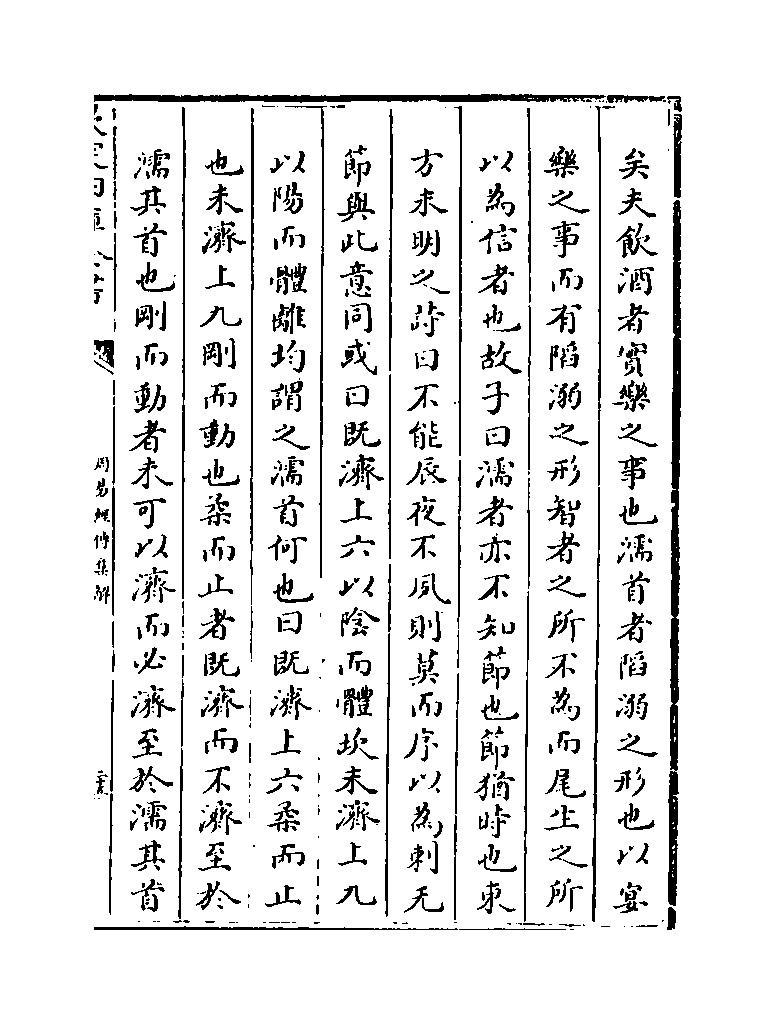 矣夫飲酒者實樂之事也濡首者陷溺之形也以宴
樂之事而有陷溺之形智者之所不為而尾生之所
以為信者也故子曰濡者亦不知節也節猶時也東
方未明之詩曰不能辰夜不夙則莫而序以為刺无
節與此意同或曰既濟上六以陰而體坎未濟上九
以陽而體離均謂之濡首何也曰既濟上六柔而止
也未濟上九剛而動也柔而止者既濟而不濟至於
濡其首也剛而動者未可以濟而必濟至於濡其首
周易經傳集解